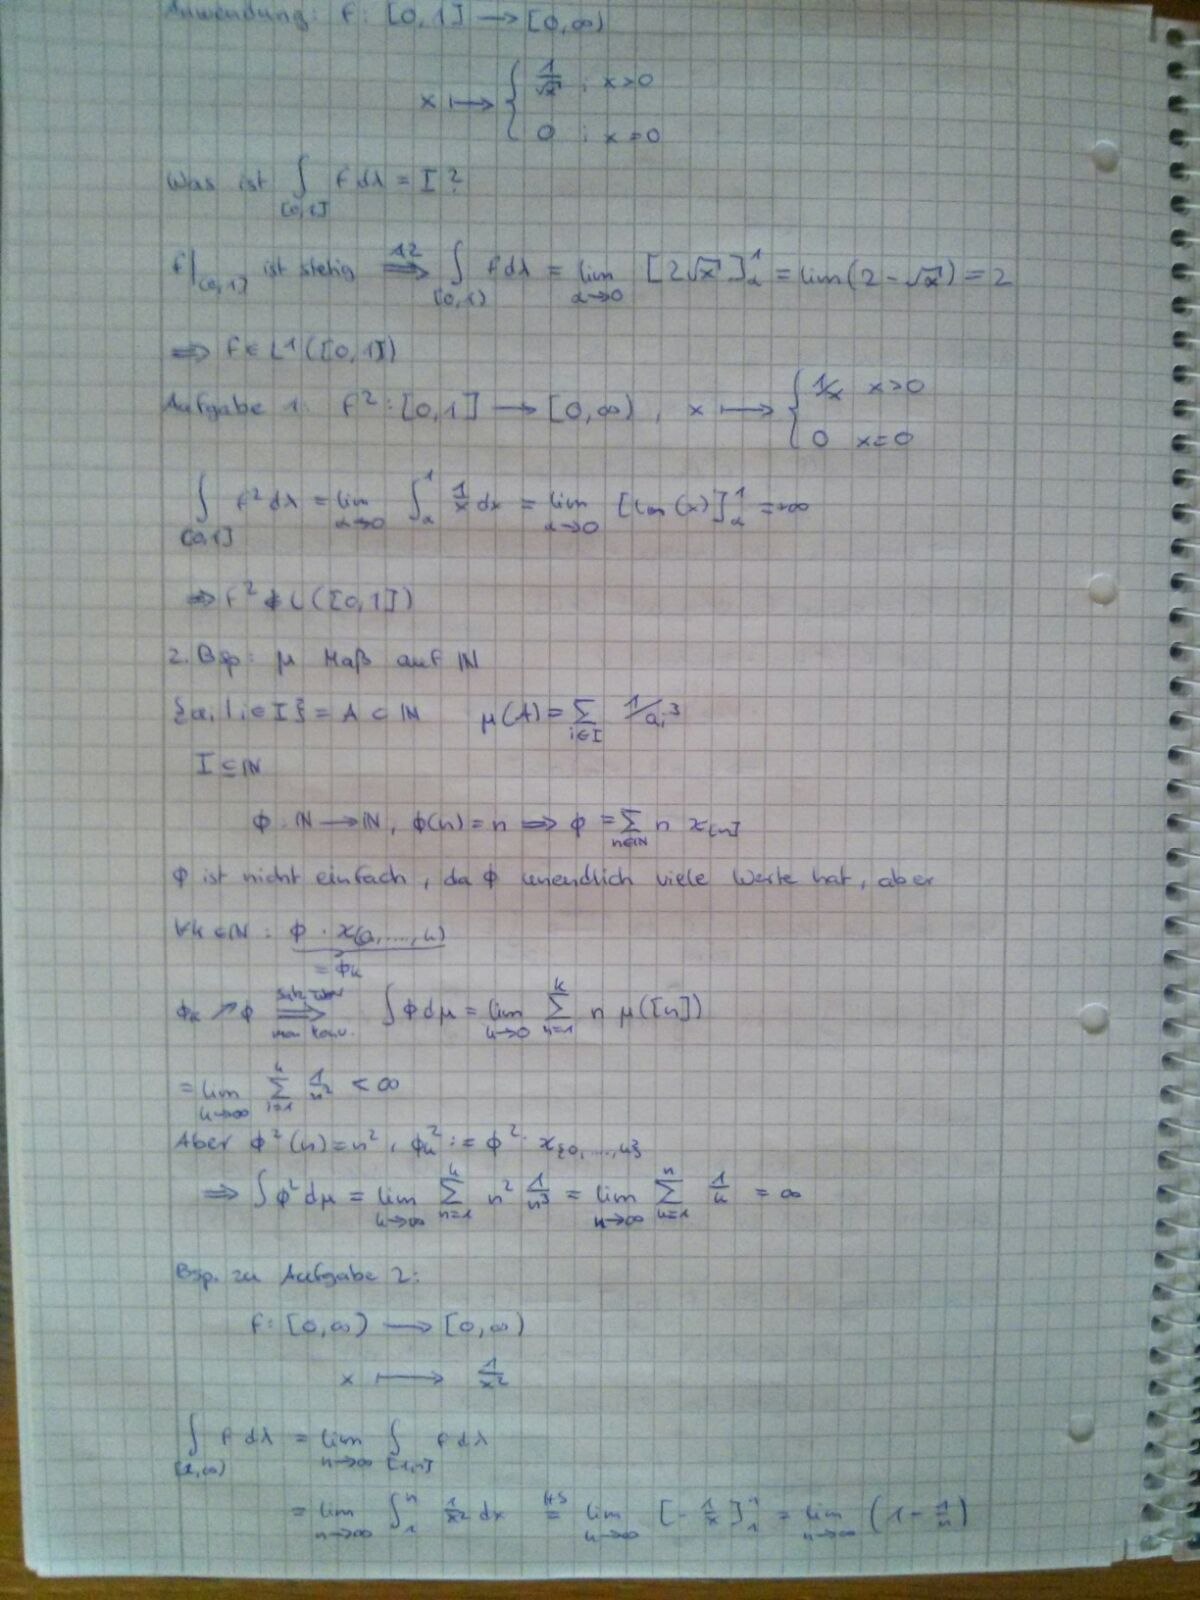 Anwendung: f: [0,1] → [0,∞)
x ↦ { 1/√x ; x>0
0 ; x=0
Was ist ∫_[0,1] f dλ = I?
f|_(0,1] ist stetig ⟹^{A2} ∫_[0,1) f dλ = lim_{α→0} [2√x]_α^1 = lim(2-√α) = 2
⟹ f ∈ L^1([0,1])
Aufgabe 1: f²: [0,1] → [0,∞), x ↦ { 1/x x>0
0 x=0
∫_[0,1] f² dλ = lim_{α→0} ∫_α^1 1/x dx = lim_{α→0} [ln(x)]_α^1 = +∞
⟹ f² ∉ L([0,1])
2. Bsp: μ Maß auf ℕ
{a_i | i∈I} = A ⊂ ℕ μ(A) = Σ_{i∈I} 1/a_i³
I ⊆ ℕ
φ: ℕ → ℕ, φ(n) = n ⟹ φ = Σ_{n∈ℕ} n χ_[n]
φ ist nicht einfach, da φ unendlich viele Werte hat, aber
∀k∈ℕ: φ · χ_(0,...,k)
= φ_k
φ_k ↗ φ ⟹ ∫φ dμ = lim_{k→0} Σ_{n=1}^k n μ([n])
= lim_{k→∞} Σ_{i=1}^k 1/n² < ∞
Aber φ²(n) = n², φ_k² := φ² · χ_{0,...,k}
⟹ ∫φ² dμ = lim_{k→∞} Σ_{n=1}^k n² 1/n³ = lim_{n→∞} Σ_{k=1}^n 1/k = ∞
Bsp. zu Aufgabe 2:
f: [0,∞) → [0,∞)
x ↦ 1/x²
∫_[1,∞) f dλ = lim_{n→∞} ∫_[1,n] f dλ
= lim_{n→∞} ∫_1^n 1/x² dx =^{HS} lim_{n→∞} [-1/x]_1^n = lim_{n→∞} (1-1/n)